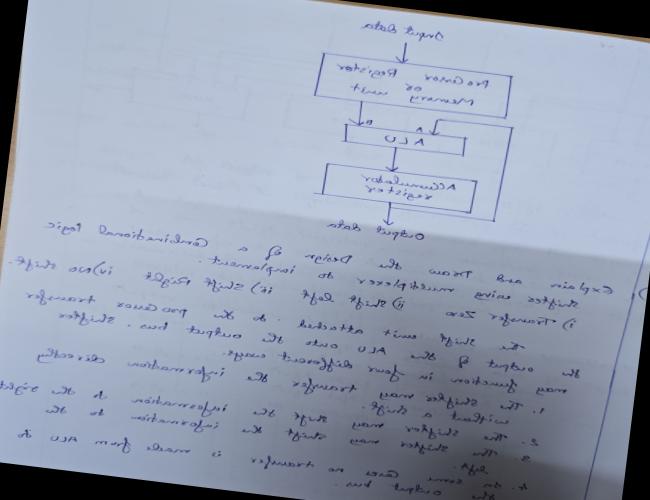 Input data
Processor Register
or
Memory unit
B
A
ALU
Accumulator
register
Output data
Explain and Draw the Design of a Combinational logic
shifter using multiplexer to implement.
i) Transfer Zero ii) Shift left iii) Shift Right iv) No Shift.
The Shift unit attached to the processor transfer
the output of the ALU onto the output bus. Shifter
may function in four different ways.
1. The Shifter may transfer the information directly
without a Shift.
2. The Shifter may Shift the information to the right
3. The Shifter may Shift the information to the
left.
4. In some Cases no transfer is made from ALU to
the output bus.